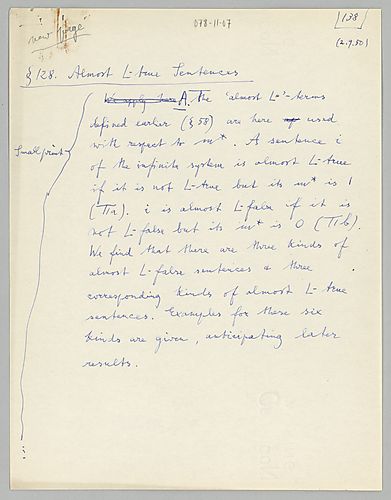 078-11-07
138
(2.9.50)
new page
§ 128. Almost L-true Sentences
We apply here A. The 'almost L-'-terms
defined earlier (§ 58) are here of used
with respect to m*. A sentence i
Small print
of the infinite system is almost L-true
if it is not L-true but its m* is 1
(IIa). i is almost L-false if it is
not L-false but its m* is 0 (IIb).
We find that there are three kinds of
almost L-false sentences & three
corresponding kinds of almost L-true
sentences. Examples for these six
kinds are given, anticipating later
results.